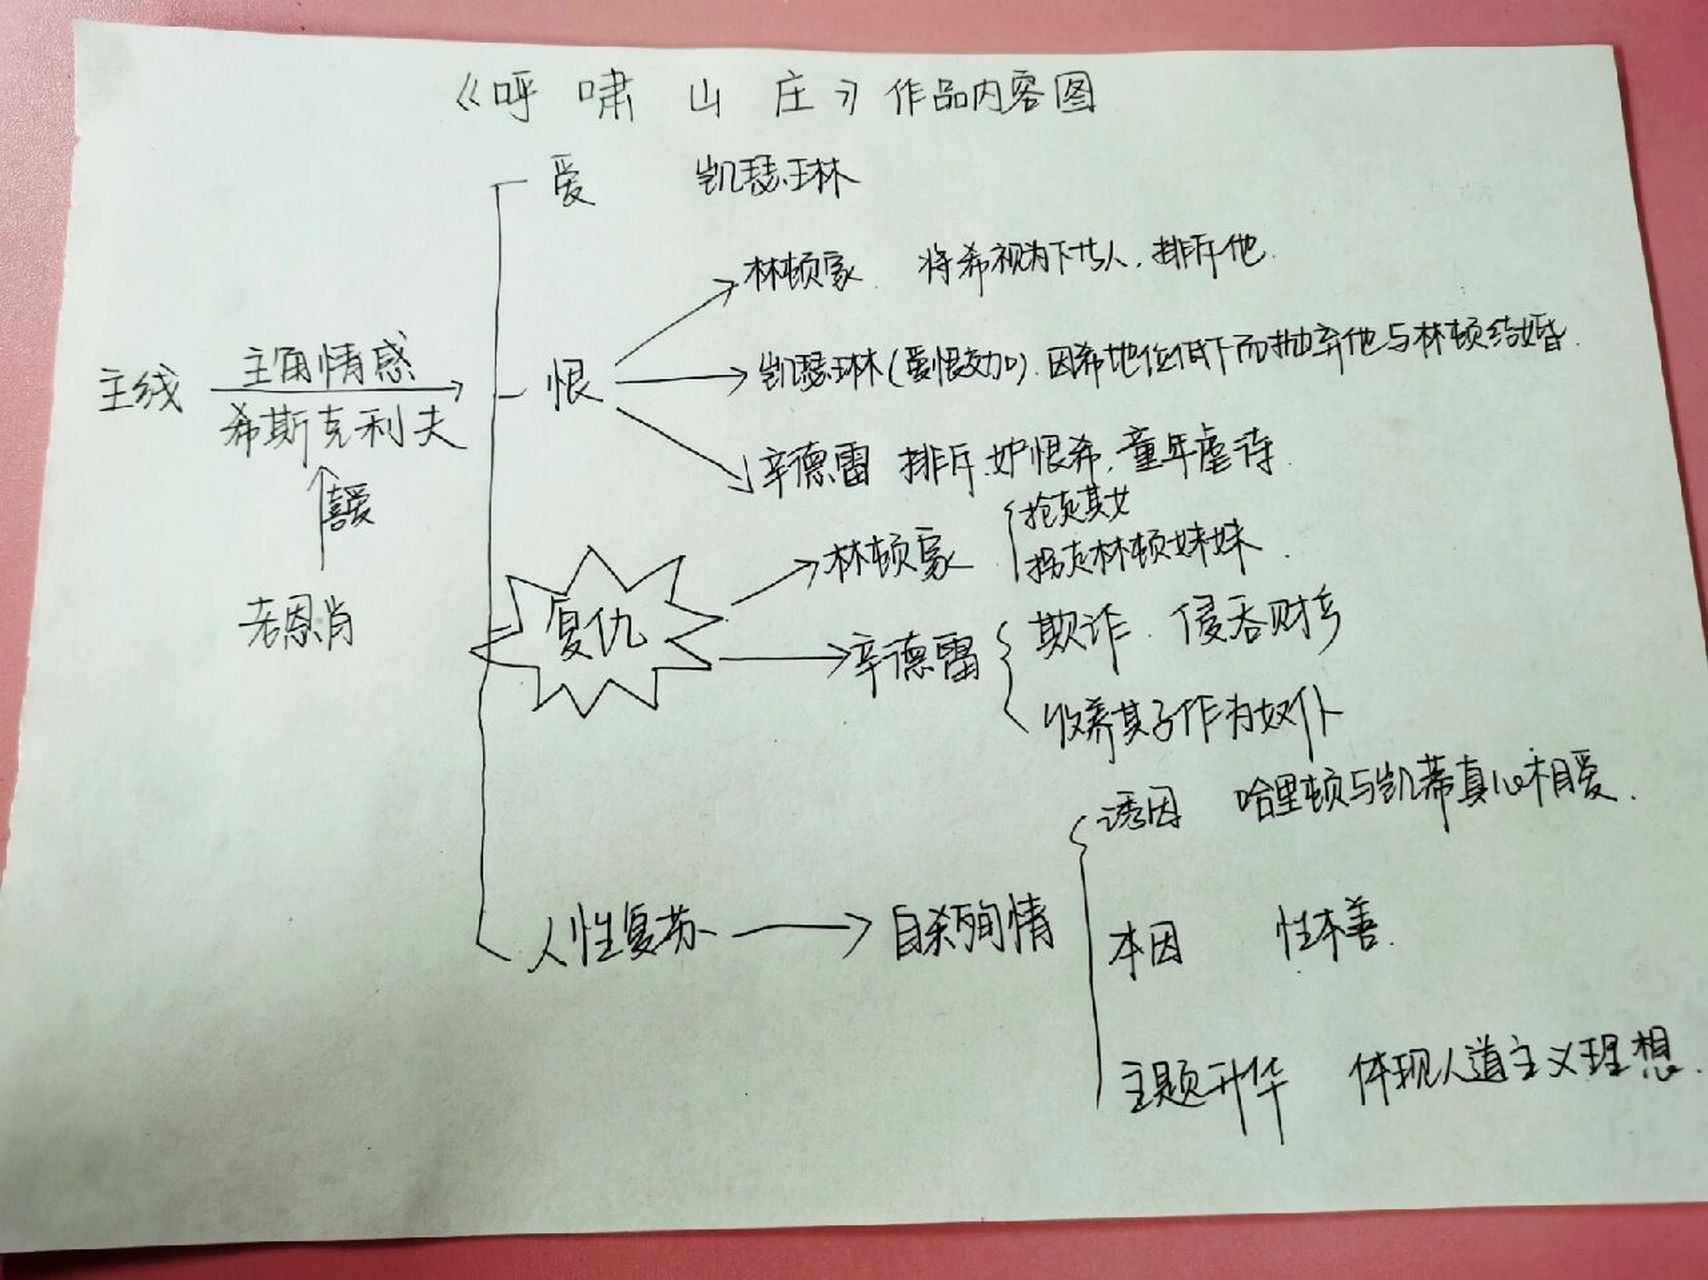 《呼啸山庄》作品内容图
爱 凯瑟琳
林顿家 将希视为下等人，排斥他.
主线 主角情感 希斯克利夫
恨
凯瑟琳(爱恨交加).因希地位低下而抛弃他与林顿结婚.
辛德雷 排斥.妒恨希，童年虐待.
喜爱
老恩肖
复仇
林顿家
抢其女
拐走林顿妹妹.
辛德雷
欺诈.侵吞财产
收养其子作为奴仆
人性复苏
自杀殉情
诱因 哈里顿与凯蒂真心相爱.
本因 性本善.
主题升华 体现人道主义理想.